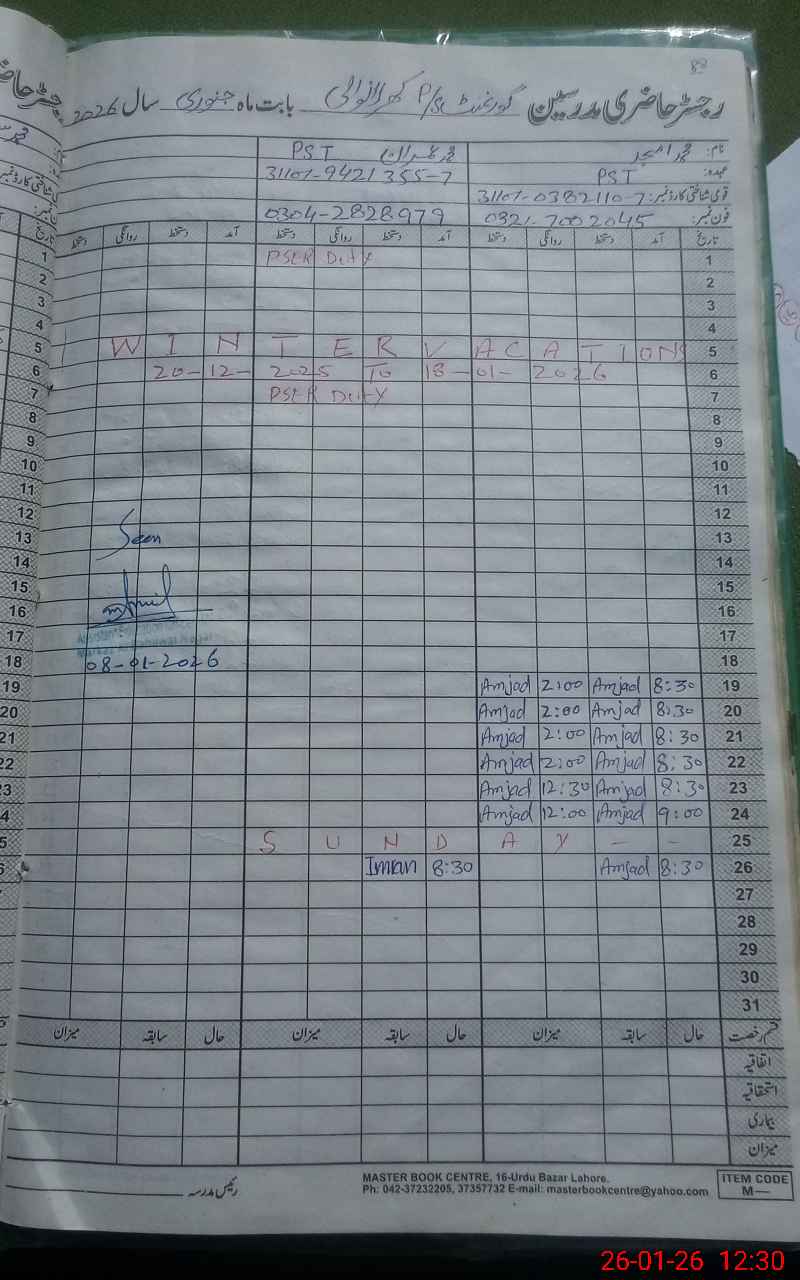 88
رجسٹر حاضری مدرسین گورنمنٹ P/S کھرلانوالی بابت ماہ جنوری سال 2026
نام: محمد امجد محمد عمران PST
عہدہ: PST 31101-9421355-7
قومی شناختی کارڈ نمبر: 31101-0382110-7
فون نمبر: 0321-7002045 0304-2828979
تاریخ آمد دستخط روانگی دستخط آمد دستخط روانگی دستخط آمد دستخط روانگی دستخط
1 PSER Duty
2
3
4
5 WINTER VACATIONS
6 20-12-2025 To 18-01-2026
7 PSER Duty
8
9
10
11
12
13 Seen
14
15
16
17
18 08-01-2026
19 8:30 Amjad 2:00 Amjad
20 8:30 Amjad 2:00 Amjad
21 8:30 Amjad 2:00 Amjad
22 8:30 Amjad 2:00 Amjad
23 8:30 Amjad 12:30 Amjad
24 9:00 Amjad 12:00 Amjad
25 SUNDAY - -
26 8:30 Amjad 8:30 Imran
27
28
29
30
31
قسم رخصت حال سابقہ میزان حال سابقہ میزان حال سابقہ میزان
اتفاقیہ
استحقاقیہ
بیماری
میزان
رئیس مدرسہ
MASTER BOOK CENTRE, 16-Urdu Bazar Lahore.
Ph: 042-37232205, 37357732 E-mail: masterbookcentre@yahoo.com
ITEM CODE
M—
26-01-26 12:30